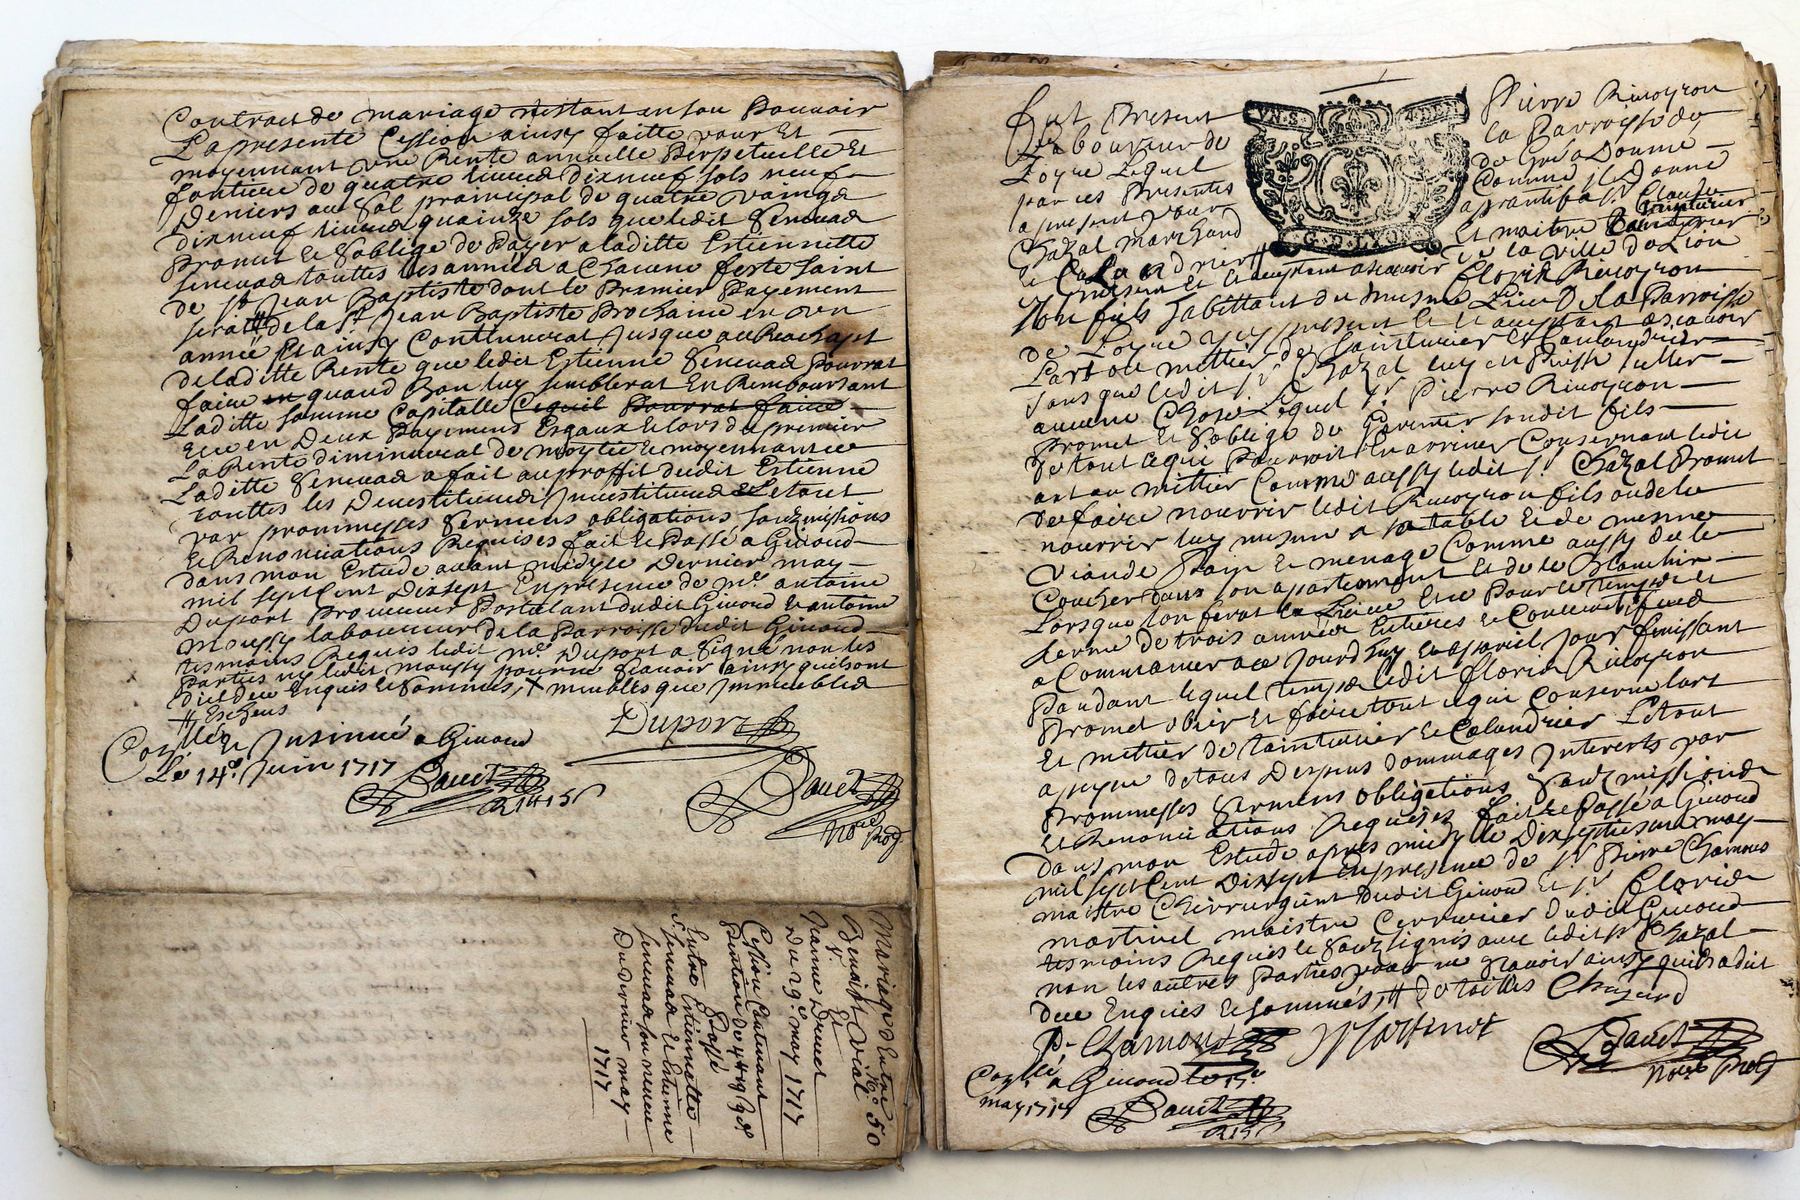 Contract de mariage restant en son Pouvoir
La presente Cession ainsy faitte pour Et
moyennant une Rente annuelle Perpetuelle Et
fontiere de quatre livres dixneuf sols neuf
Deniers au sol principal de quatre vaingz
dixneuf livres quainze sols que ledit Seneuad
Promet Et soblige de Payer a laditte Estiennette
Seneuad touttes les années a Chacune feste saint
de st Jean Baptiste dont le Premier Payement
serat de la st Jean Baptiste Prochaine en un
année Et ainsy Continuerat Jusque au Reachapt
de laditte Rente que ledit Estienne Seneuad Pourrat
faire en quand Bon luy semblerat En Remboursant
Laditte somme Capitalle Cequil Pourrat faire
en Deux Payements Esgaux Et lors du premier
La Rente diminuerat de moytie Et moyennant ce
Laditte Seneuad a fait au proffit dudit Estienne
touttes les Devestitures Investitures Et le tout
par prommesses sermens obligations soubzmissions
Et Renonciations Requises fait Et Passé a Givord
dans mon Estude avant midy le Dernier may
mil sept Cent Dixsept En presence de me antoine
Duport Procureur Postulant dudit Givord Et antoine
moussy laboureur de la Parroisse dudit Givord
tesmoins Requis ledit me Duport a signé non les
Parties ny ledit moussy pour ne scavoir ainsy quils ont
dit de ce Enquis Et sommés, X meubles que Immeubles
# Escheus
Duport
Con^lle Et Insinué a Givord
Le 14e Juin 1717
Dauet
R 1^tt 15^s
Dauet
no^re Roy^l
Mariage Entre
Benoist Vial
Et
Du 29e may 1717
No 50
Cession Contenant
Pention de 4tt 19s 9d
Passé
Entre Estiennette
Seneuad Et Estienne
Seneuad son neveu
Du Dernier may
1717
VN. S. 4. DEN.
G. D. LYON
fut Present Pierre Rivoyron
Laboureur de la Parroisse de
Loyre Lequel de Gré a Donné
par ces Presentes Comme Il Donne
a present pour aprantif a sr Claude
Chazal marchand Et maitre Tainturier
Et Calandrier de la ville de Lion
Cy present Et acceptant a scavoir Floris Rivoyron
son fils habittant du mesme Lieu De la Parroisse
de Loyre Icy present Et acceptant a scavoir
Lart ou mettier de Tainturier Et Calandrier
sans que ledit sr Chazal luy en Puisse celler
aucune Chose. Lequel sr Pierre Rivoyron
Promet Et soblige de Garentir sondit fils
De tout ce que Pourroit En arriver Consernant ledit
art ou mettier Comme aussy ledit sr Chazal Promet
de faire nourrir ledit Rivoyron fils ou de le
nourrir luy mesme a sa table Et de mesme
viande Pain Et menage Comme aussy de le
Coucher dans son apartement Et de le Blanchir
Lorsque lon ferat la Lessive Et ce Pour le temps Et
terme de trois années Entieres Et Consecutifves
a Commancer a ce Jourdhuy
Pandant lequel temps ledit Floris Rivoyron
Promet obeir Et faire tout ce qui Conserne lart
Et mettier de tainturier Et Calandrier Le tout
a peyne de tous Despens dommages Interets par
Prommesses sermens obligations soubzmissions
Et Renonciations Requises fait Et Passé a Givord
Dans mon Estude apres midy le Dixseptiesme may
mil sept Cent Dixsept En presence de sr Pierre Chamous
maistre Chirurgient dudit Givord Et sr Floris
martinel maistre Cerrurier dudit Givord
tesmoins Requis Et soubzsignés avec ledit sr Chazal
non les autres Parties pour ne scavoir ainsy quils ont dit
de ce Enquis Et sommés,
P. Chamous
Dauet
no^re Roy^l
Con^lle a Givord le
may 1717
Dauet
R 15^s